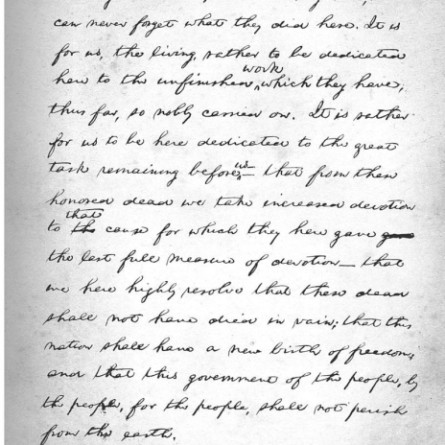 can never forget what they did here. It is
for us, the living, rather to be dedicated
here to the unfinished work which they have,
thus far, so nobly carried on. It is rather
for us to be here dedicated to the great
task remaining before us — that from these
honored dead we take increased devotion
to the that cause for which they here gave gave
the last full measure of devotion — that
we here highly resolve that these dead
shall not have died in vain; that this
nation shall have a new birth of freedom,
and that this government of the people, by
the people, for the people, shall not perish
from the earth.